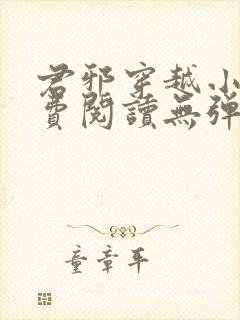 君邪穿越小
費閱讀無彈
童章平